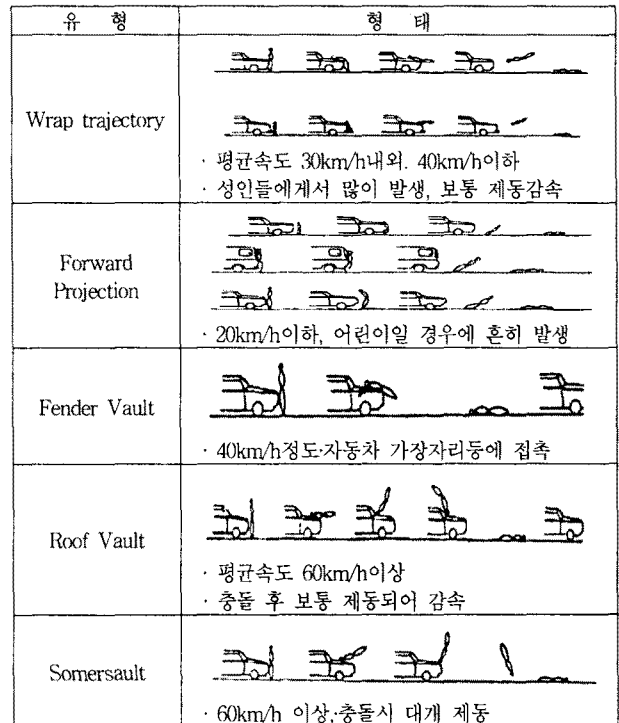 유 형
형 태
Wrap trajectory
· 평균속도 30km/h내외. 40km/h이하
· 성인들에게서 많이 발생, 보통 제동감속
Forward
Projection
· 20km/h이하, 어린이일 경우에 흔히 발생
Fender Vault
· 40km/h정도·자동차 가장자리등에 접촉
Roof Vault
· 평균속도 60km/h이상
· 충돌 후 보통 제동되어 감속
Somersault
· 60km/h 이상;충돌시 대개 제동